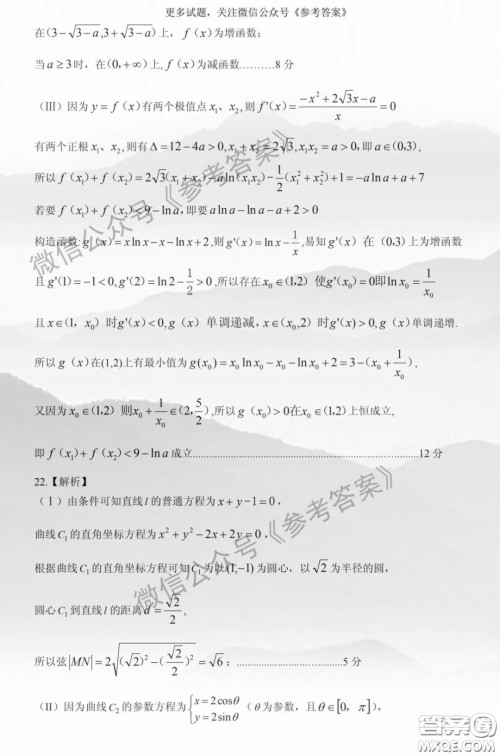 更多试题，关注微信公众号《参考答案》
在(3−√(3−a),3+√(3−a))上，f（x）为增函数；
当a≥3时，在(0,+∞)上,f（x）为减函数………8分
（III）因为y=f（x）有两个极值点x₁、x₂,则f'(x)=(−x²+2√3x−a)/x=0
有两个正根x₁、x₂,则有Δ=12−4a>0,x₁+x₂=2√3,x₁x₂=a>0,即a∈(0,3),
所以f（x₁）+f（x₂）=2√3(x₁+x₂)−aln(x₁x₂)−1/2(x₁²+x₂²)+1=−alna+a+7
若要f（x₁）+f（x₂）<9−lna,即要alna−lna−a+2>0
构造函数:g（x）=xlnx−x−lnx+2,则g'(x)=lnx−1/x,易知g'(x）在（0,3)上为增函数
且g'(1)=−1<0,g'(2)=ln2−1/2>0,所以存在x₀∈(1,2）使g'(x)=0即lnx₀=1/x₀
且x∈(1，x₀）时g'(x)<0,g（x）单调递减，x∈(x₀,2）时g'(x)>0,g（x）单调递增.
所以g（x）在(1,2)上有最小值为g(x₀)=x₀lnx₀−x₀−lnx₀+2=3−(x₀+1/x₀),
又因为x₀∈(1,2）则x₀+1/x₀∈(2,5/2),所以g（x）>0在x₀）上恒成立,
即f（x₁）+f（x₂）<9−lna成立………12分
22.【解析】
（Ⅰ）由条件可知直线l的普通方程为x+y−1=0，
曲线C₁的直角坐标方程为x²+y²−2x+2y=0，
根据曲线C₁的直角坐标方程可知C₁为以(1,−1)为圆心，以√2为半径的圆，
圆心C₁到直线l的距离d=√2/2，
所以弦|MN|=2√((√2)²−(√2/2)²)=√6；………5分
（II）因为曲线C₂的参数方程为{x=2cosθ y=2sinθ（θ为参数，且θ∈[0，π]），
微信公众号《参考答案》
微信公众号《参考答案》
答案圈
MXQE.COM